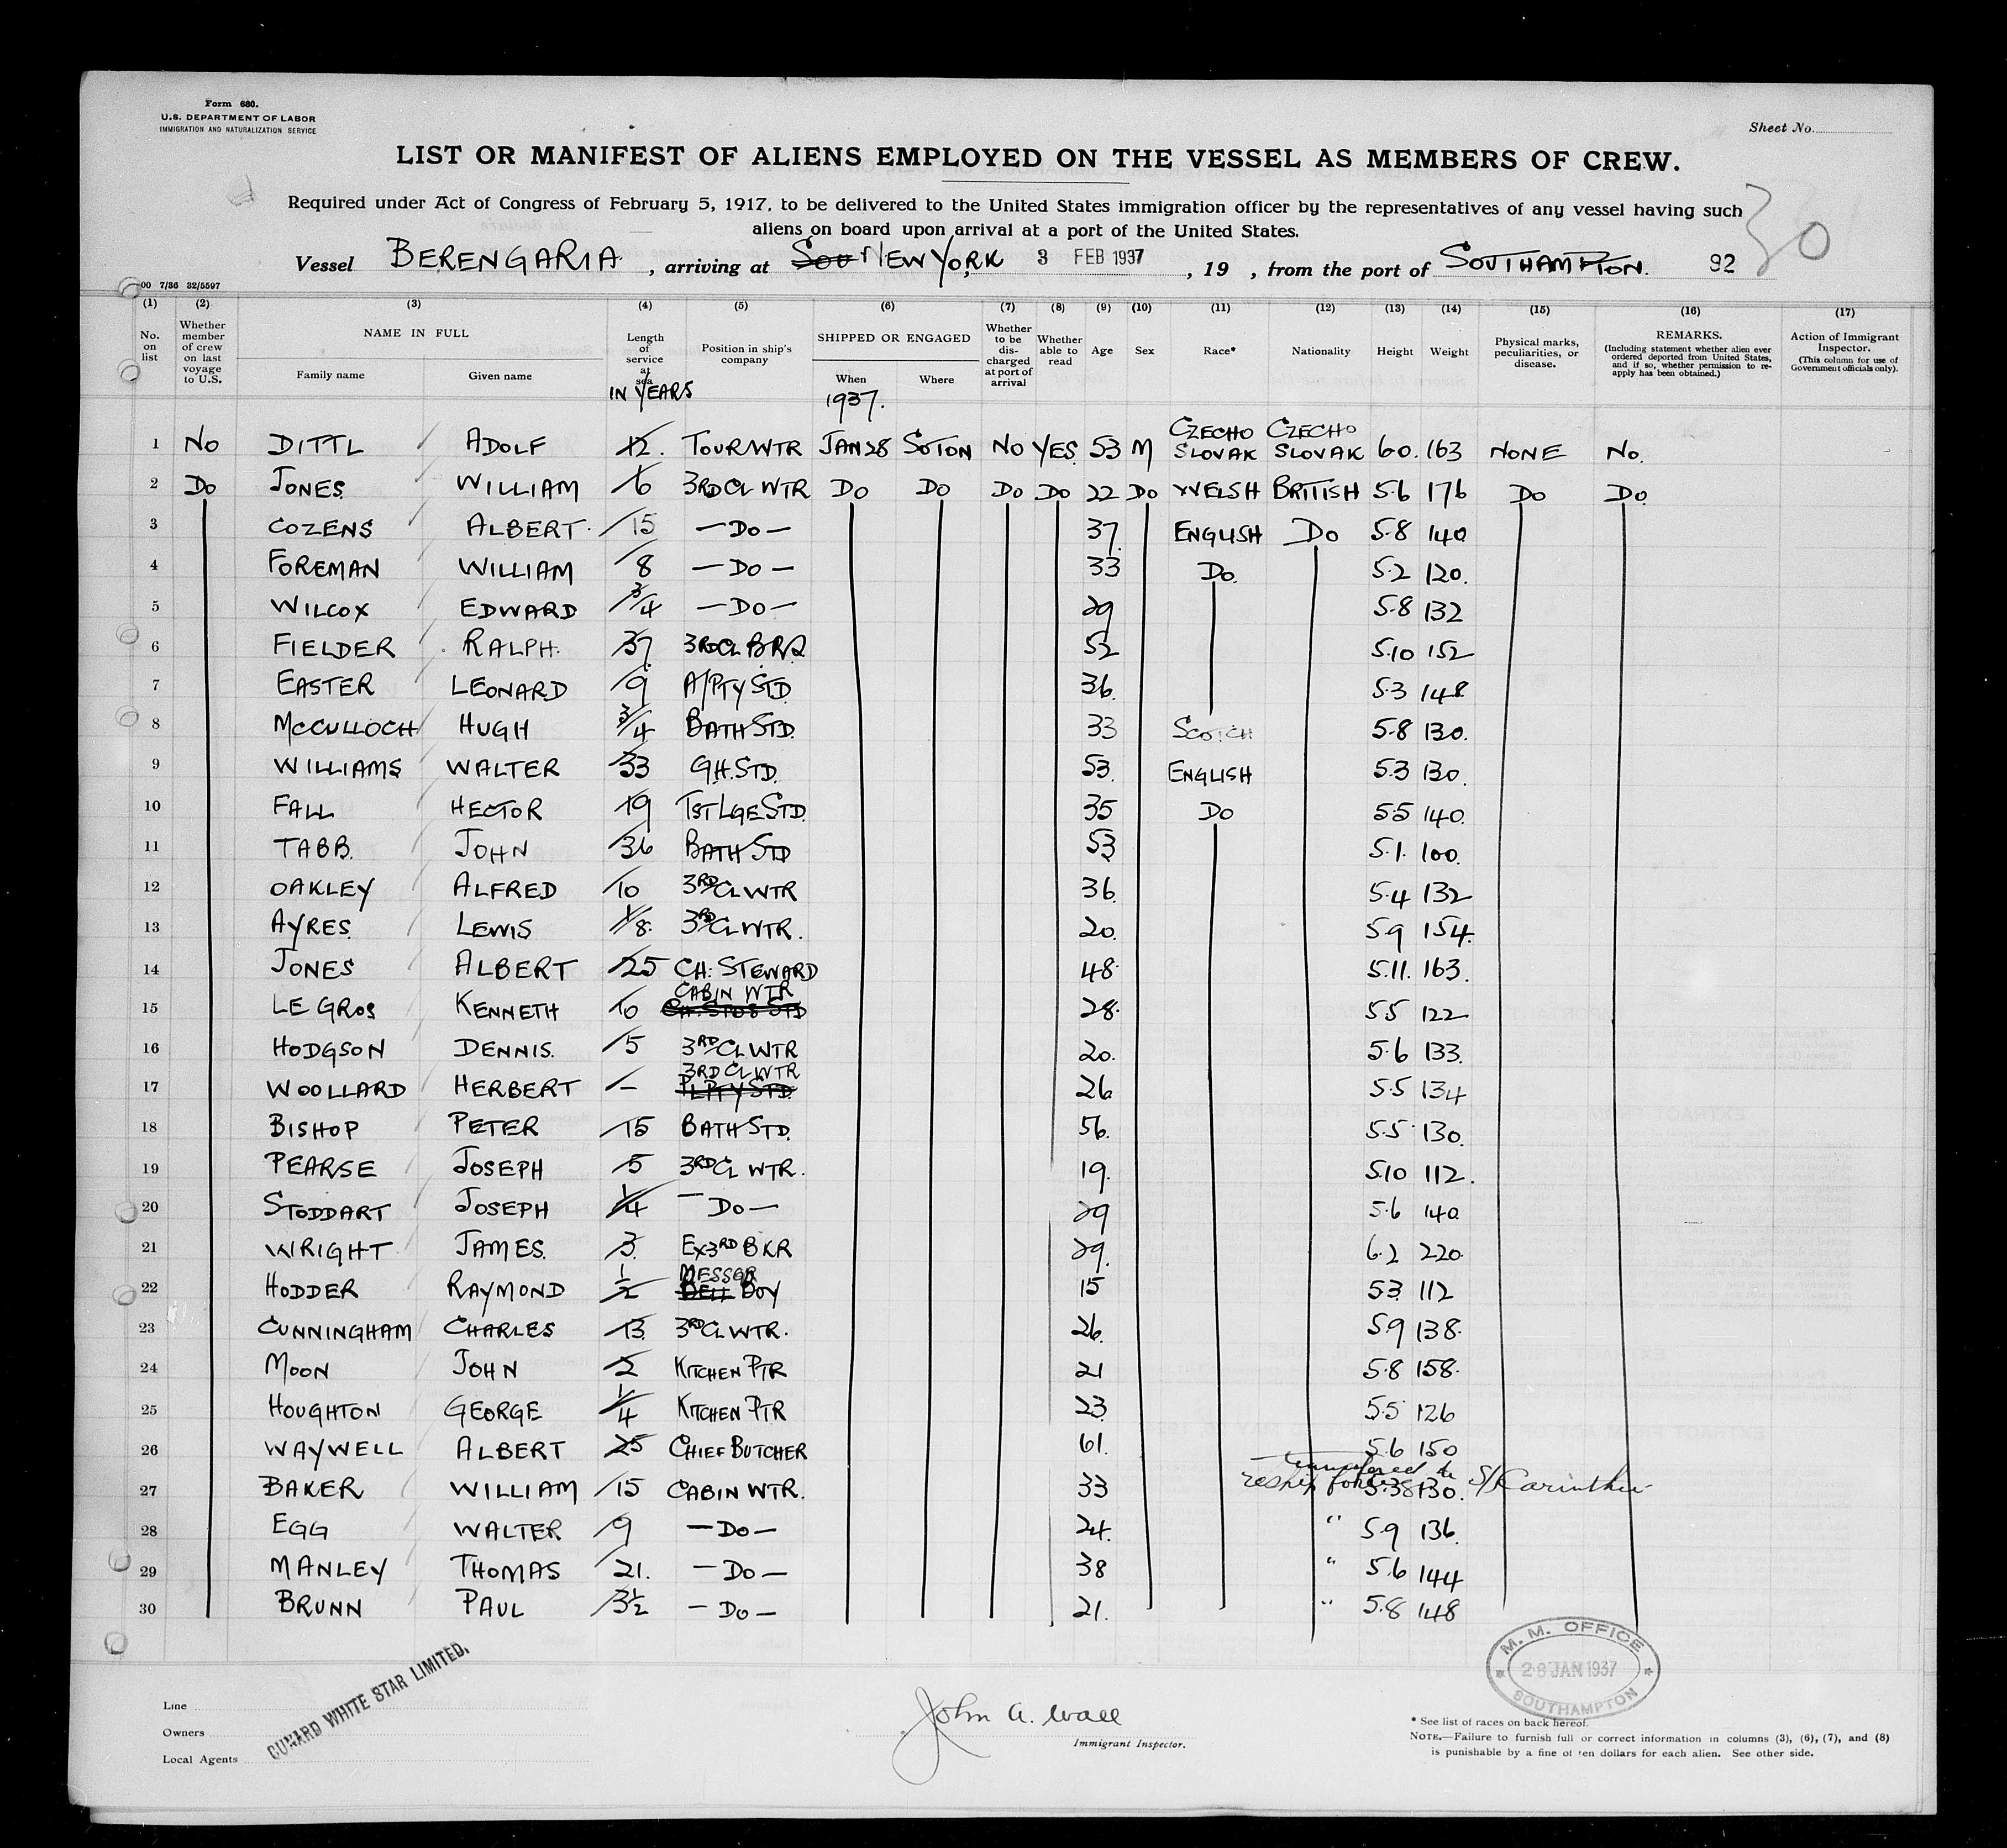 Form 680.
U.S. DEPARTMENT OF LABOR
IMMIGRATION AND NATURALIZATION SERVICE
Sheet No.
LIST OR MANIFEST OF ALIENS EMPLOYED ON THE VESSEL AS MEMBERS OF CREW.
Required under Act of Congress of February 5, 1917, to be delivered to the United States immigration officer by the representatives of any vessel having such
aliens on board upon arrival at a port of the United States.
30
Vessel BERENGARIA, arriving at Sou NEW YORK 3 FEB 1937, 19 , from the port of SOUTHAMPTON. 92
00 7/36 32/5597
(1) (2) (3) (4) (5) (6) (7) (8) (9) (10) (11) (12) (13) (14) (15) (16) (17)
No. on list
Whether member of crew on last voyage to U.S.
NAME IN FULL
Family name Given name
Length of service at sea
IN YEARS
Position in ship's company
SHIPPED OR ENGAGED
When Where
1937.
Whether to be discharged at port of arrival
Whether able to read
Age Sex Race* Nationality Height Weight
Physical marks, peculiarities, or disease.
REMARKS.
(Including statement whether alien ever ordered deported from United States, and if so, whether permission to reapply has been obtained.)
Action of Immigrant Inspector.
(This column for use of Government officials only).
1 No DITTL ADOLF 12. TOUR WTR JAN 28 SOTON NO YES 53 M CZECHO SLOVAK CZECHO SLOVAK 6 0. 163 NONE No.
2 Do JONES WILLIAM 6 3RD CL WTR Do Do Do Do 22 Do WELSH BRITISH 5.6 176 Do Do
3 COZENS ALBERT 15 — Do — 37. ENGLISH Do 5.8 140
4 FOREMAN WILLIAM 8 — Do — 33 Do. 5.2 120.
5 WILCOX EDWARD 3/4 — Do — 29 5.8 132
6 FIELDER RALPH. 37. 3RD CL BR 52 5.10 152
7 EASTER LEONARD 9 A/PTY STD 36. 5.3 148
8 McCULLOCH HUGH 3/4 BATH STD. 33 SCOTCH 5.8 130.
9 WILLIAMS WALTER 33 G.H. STD. 53. ENGLISH 5.3 130.
10 FALL HECTOR 19 TST LGE STD. 35 Do 5.5 140.
11 TABB. JOHN 36 BATH STD 53 5.1. 100.
12 OAKLEY ALFRED 10 3RD CL WTR 36. 5.4 132
13 AYRES. LEWIS 1/8. 3RD CL WTR. 20. 5.9 154.
14 JONES ALBERT 25 CH: STEWARD 48. 5.11. 163.
15 LE GROS KENNETH 10 CABIN WTR 28. 5.5 122
16 HODGSON DENNIS. 5 3RD CL WTR 20. 5.6 133.
17 WOOLLARD HERBERT — 3RD CL WTR PLPTY STD. 26 5.5 134
18 BISHOP PETER 15 BATH STD. 56. 5.5 130.
19 PEARSE JOSEPH 5 3RD CL WTR. 19. 5.10 112.
20 STODDART JOSEPH 1/4 — Do — 29 5.6 140
21 WRIGHT JAMES. 3. EX 3RD BKR 29. 6.2 220.
22 HODDER RAYMOND 1/2 MESSGR BELL BOY 15 5.3. 112
23 CUNNINGHAM CHARLES 13. 3RD CL WTR. 26. 5.9 138.
24 MOON JOHN 2 KITCHEN PTR 21 5.8 158.
25 HOUGHTON GEORGE 1/4 KITCHEN PTR 23. 5.5 126
26 WAYWELL ALBERT 25 CHIEF BUTCHER 61. 5.6 150
transferred to
27 BAKER WILLIAM 15 CABIN WTR. 33 reship foreign 5.3 130. S/S Carinthia
28 EGG WALTER 9 — Do — 24. " 5.9 136.
29 MANLEY THOMAS 21. — Do — 38 " 5.6 144
30 BRUNN PAUL 3½ — Do — 21. " 5.8 148
M. M. OFFICE
28 JAN 1937
SOUTHAMPTON
Line
Owners
Local Agents
CUNARD WHITE STAR LIMITED.
John A. Wall
Immigrant Inspector.
* See list of races on back hereof.
NOTE.—Failure to furnish full or correct information in columns (3), (6), (7), and (8)
is punishable by a fine of ten dollars for each alien. See other side.